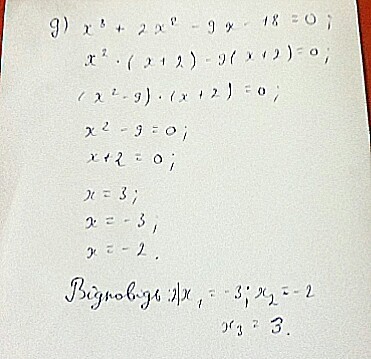 g) x³ + 2x² - 9x - 18 = 0;
x² · (x+2) - 9(x+2) = 0;
(x² - 9) · (x+2) = 0;
x² - 9 = 0;
x+2 = 0;
x = 3;
x = -3;
x = -2.
Відповідь: x₁ = -3; x₂ = -2
x₃ = 3.